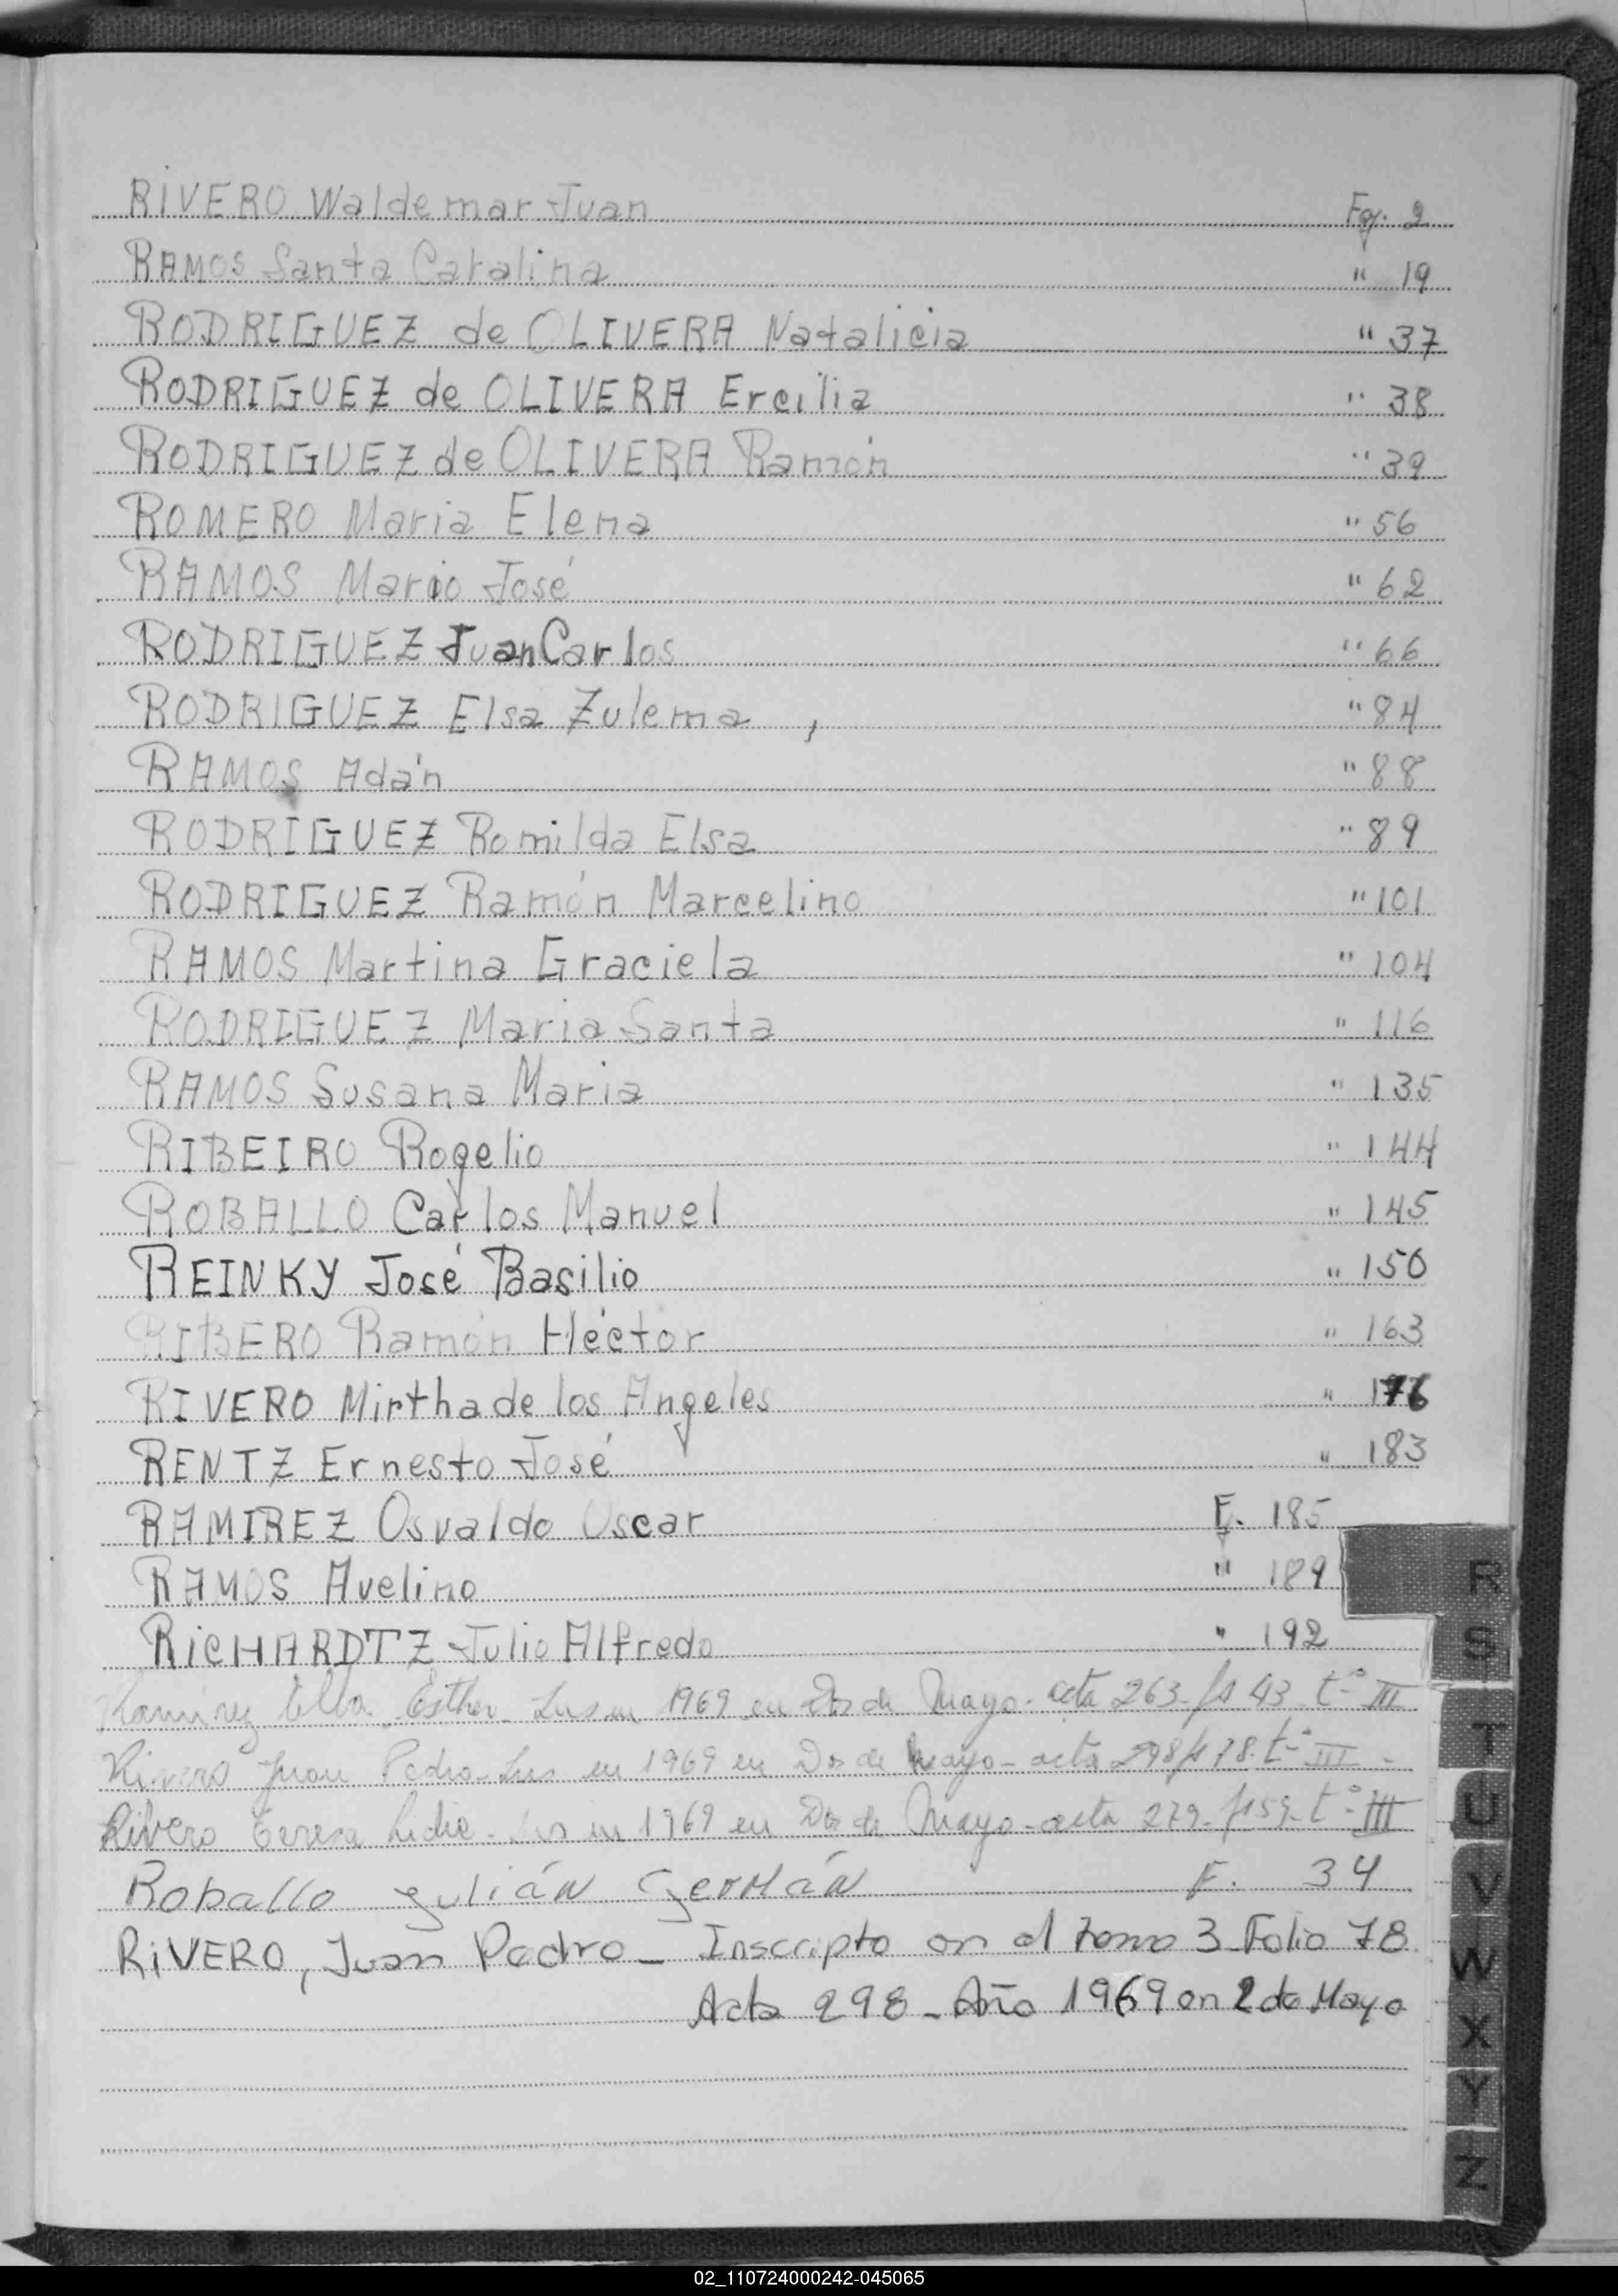 RIVERO Waldemar Juan Fo. 2
RAMOS Santa Catalina " 19
RODRIGUEZ de OLIVERA Natalicia " 37
RODRIGUEZ de OLIVERA Ercilia " 38
RODRIGUEZ de OLIVERA Ramón " 39
ROMERO Maria Elena " 56
RAMOS Mario José " 62
RODRIGUEZ Juan Carlos " 66
RODRIGUEZ Elsa Zulema , " 84
RAMOS Adán " 88
RODRIGUEZ Romilda Elsa " 89
RODRIGUEZ Ramón Marcelino " 101
RAMOS Martina Graciela " 104
RODRIGUEZ Maria Santa " 116
RAMOS Susana Maria " 135
RIBEIRO Rogelio " 144
ROBALLO Carlos Manuel " 145
REINKY José Basilio " 150
RIBERO Ramón Héctor " 163
RIVERO Mirtha de los Angeles " 176
RENTZ Ernesto José " 183
RAMIREZ Osvaldo Oscar F. 185
RAMOS Avelino " 189
RICHARDTZ Julio Alfredo " 192
Ramirez Esther 1969 en Dos de Mayo - acta 263 fs 43 t° III
Rivero Juan Pedro - Ins en 1969 en Dos de Mayo - acta 298 fs 78 t° III -
Rivero Teresa Lidia - Ins en 1969 en Dos de Mayo - acta 279 - fs 59 - t° - III
Roballo Julián Germán F. 34
RIVERO, Juan Pedro - Inscripto en el tomo 3 Folio 78
Acta 298 - Año 1969 en 2 de Mayo
R
S
T
U
V
W
X
Y
Z
02_110724000242-045065